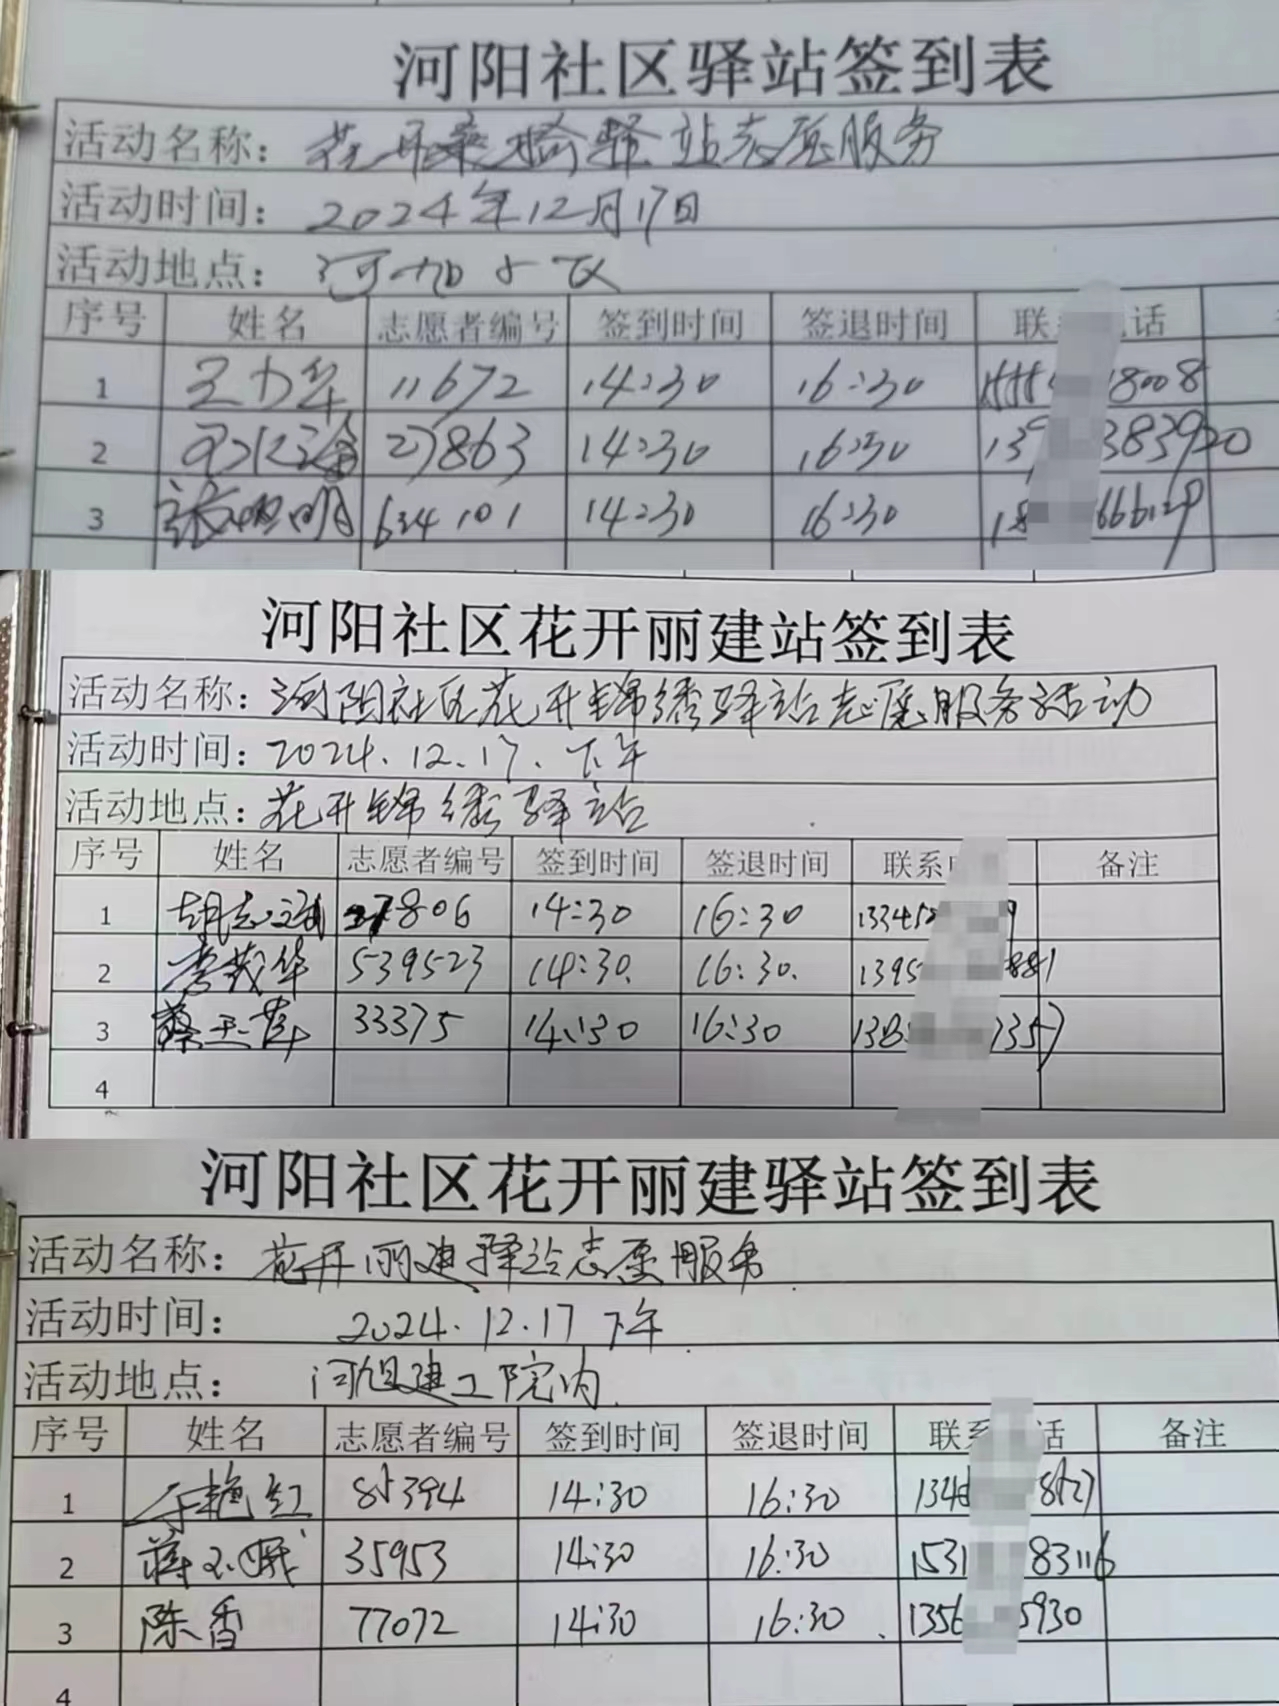 河阳社区驿站签到表
活动名称： 花开 驿站志愿服务
活动时间： 2024年12月17日
活动地点： 河阳
序号 姓名 志愿者编号 签到时间 签退时间 联 话
1 王力华 11672 14:30 16:30 8008
2 27863 14:30 16:30 139 3839
3 张 明 634101 14:30 16:30 18
河阳社区花开丽建站签到表
活动名称：河阳社区花开锦绣驿站志愿服务活动
活动时间：2024.12.17.下午
活动地点：花开锦绣驿站
序号 姓名 志愿者编号 签到时间 签退时间 联系 备注
1 胡志斌 27806 14:30 16:30 13345
2 李茂华 539523 14:30. 16:30. 1395 881
3 蔡玉萍 33375 14:30 16:30 138 7357
4
河阳社区花开丽建驿站签到表
活动名称： 花开丽建驿站志愿服务.
活动时间： 2024.12.17 下午
活动地点： 河阳建工院内.
序号 姓名 志愿者编号 签到时间 签退时间 联系 话 备注
1 于艳红 85394 14:30 16:30 134
2 蒋 娥 35953 14:30 16:30 1531 83116
3 陈香 77072 14:30 16:30 1356 5930
4